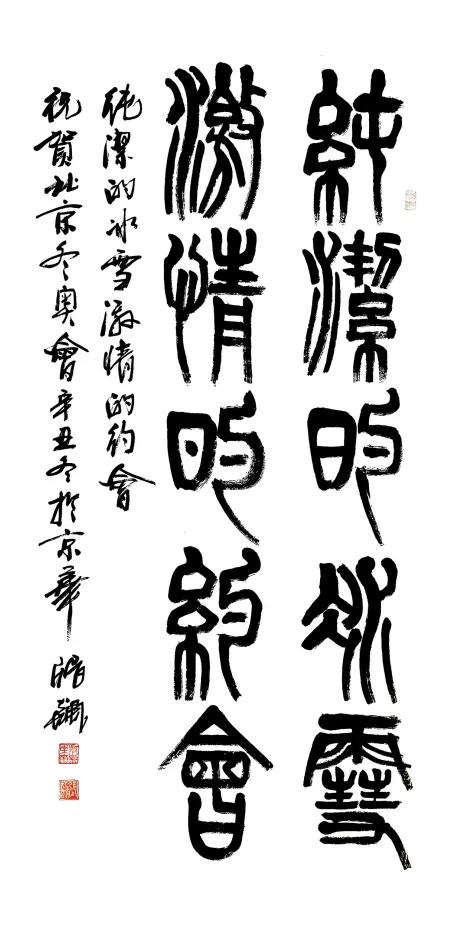 純潔的冰雪
激情的約會
純潔的冰雪激情的約會
祝賀北京冬奥會辛丑冬於京華